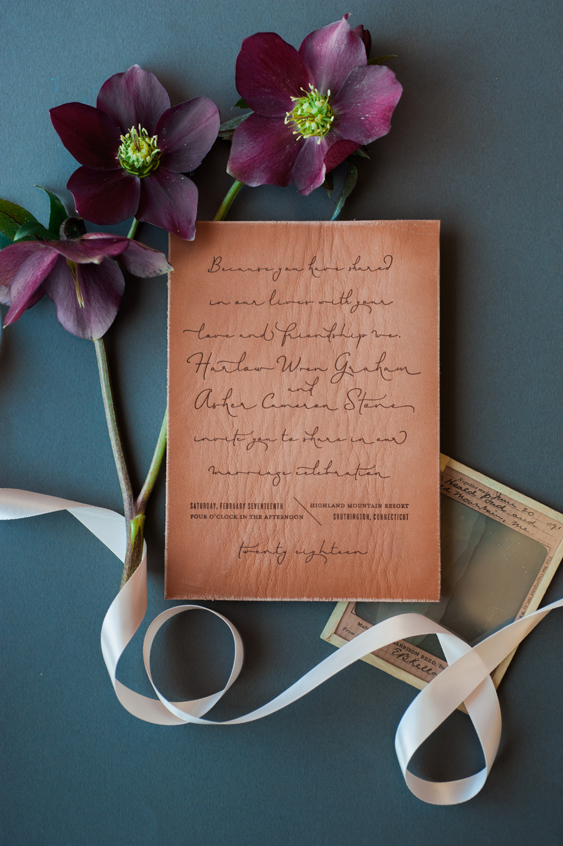 Because you have shared
in our lives with your
love and friendship we,
Harlow Wren Graham
and
Asher Cameron Stone,
invite you to share in our
marriage celebration
SATURDAY, FEBRUARY SEVENTEENTH
FOUR O'CLOCK IN THE AFTERNOON
HIGHLAND MOUNTAIN RESORT
SOUTHINGTON, CONNECTICUT
twenty eighteen